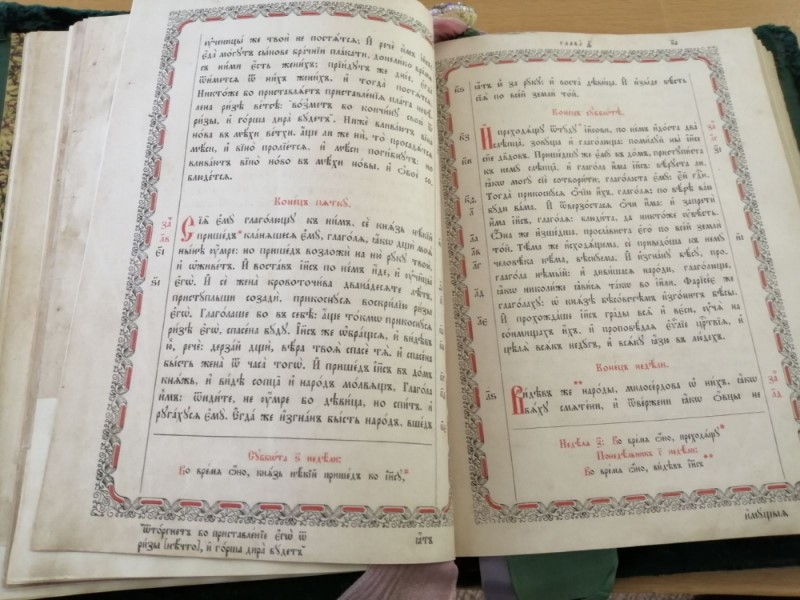 ᲂу҆ченицы̀ же твоѝ не постѧ́тсѧ; И҆ речѐ и҆̀мъ і҆и҃съ:
є҆да̀ мо́гꙋтъ сы́нове бра́чнїи пла́кати, доне́лико вре́мѧ
съ ни́ми є҆́сть жени́хъ; прїи́дꙋтъ же дні́е, є҆гда̀
ѿи́метсѧ ѿ ни́хъ жени́хъ, и҆ тогда̀ постѧ́тсѧ.
Никто́же бо приставлѧ́етъ приставле́нїѧ пла́та небѣ́-
лена ри́зѣ ве́тсѣ: во́зметъ бо кончи́нꙋ свою̀ ѿ
ри́зы, и҆ го́рша дира̀ бꙋ́детъ. Нижѐ влива́ютъ вїна̀
но́ва въ мѣ́хи ве́тхи: а҆́ще ли же нѝ, то̀ просадѧ́тсѧ
мѣ́си, и҆ вїно̀ пролїе́тсѧ, и҆ мѣ́си поги́бнꙋтъ: но
влива́ютъ вїно̀ но́во въ мѣ́хи нѡ́вы, и҆ ѻ҆бо́е со-
блюде́тсѧ.
Коне́цъ пѧткꙋ̀.
Сїѧ̑ є҆мꙋ̀ глаго́лющꙋ къ ни̑мъ, сѐ кнѧ́зь нѣ́кїй
прише́дъ кла́нѧшесѧ є҆мꙋ̀, глаго́лѧ, ꙗ҆́кѡ дщѝ моѧ̀
ны́нѣ ᲂу҆́мре: но прише́дъ возложѝ на ню̀ рꙋ́кꙋ твою̀,
и҆ ѡ҆живе́тъ. И҆ воста́въ і҆и҃съ по не́мъ и҆́де, и҆ ᲂу҆чн҃цы̀
є҆гѡ̀. И҆ сѐ жена̀ кровоточи́ва двана́десѧте лѣ́тъ,
пристꙋ́пльши созадѝ, прикоснꙋ́сѧ воскри́лїю ри́зы
є҆гѡ̀. Глаго́лаше бо въ себѣ̀: а҆́ще то́кмѡ прикоснꙋ́сѧ
ри́зѣ є҆гѡ̀, спасе́на бꙋ́дꙋ. І҆и҃съ же ѡ҆бра́щьсѧ, и҆ ви́дѣвъ
ю҆̀, речѐ: дерза́й дщѝ, вѣ́ра твоѧ̀ спасе́ тѧ. и҆ спасе́на
бы́сть жена̀ ѿ часа̀ тогѡ̀. И҆ прише́дъ і҆и҃съ въ до́мъ
кнѧ́жь, и҆ ви́дѣ сопцы̀ и҆ наро́дъ мо́лвѧщь. Глаго́ла
и҆̀мъ: ѿиди́те, не ᲂу҆́мре бо дѣви́ца, но спи́тъ. и҆
рꙋга́хꙋсѧ є҆мꙋ̀. Є҆гда́ же и҆згна́нъ бы́сть наро́дъ, вше́дъ
Сꙋббѡ́та ѕ҃ недѣ́ли:
Во вре́мѧ ѻ҆́но, кнѧ́зь нѣ́кїй прише́дъ ко і҆и҃сꙋ,
ѿто́ргнетъ бо приставле́нїе є҆гѡ̀ ѿ
ри́зы [нѣ́что], и҆ го́рша дира̀ бꙋ́детъ
ꙗ҆́тъ
Глава̀ ѳ҃
ꙗ҆́тъ ю҆̀ за рꙋ́кꙋ: и҆ воста̀ дѣви́ца. И҆ и҆зы́де вѣ́сть
сїѧ̀ по все́й землѝ то́й.
Коне́цъ сꙋббѡ́тѣ.
И҆ преходѧ́щꙋ ѿтꙋ́дꙋ і҆и҃сови, по не́мъ и҆до́ста два̀
слѣпца̑, зовꙋ̑ща и҆ глагѡ́люща: поми́лꙋй ны̀ і҆и҃се
сн҃е дв҃довъ. Прише́дшꙋ же є҆мꙋ̀ въ до́мъ, пристꙋпи́ста
къ немꙋ̀ слѣпца̑, и҆ глаго́ла и҆́ма і҆и҃съ: вѣ́рꙋета ли,
ꙗ҆́кѡ могꙋ̀ сїѐ сотвори́ти; глаго́ласта є҆мꙋ̀: є҆́й гд҇и.
Тогда̀ прикоснꙋ́сѧ ѻ҆́чїю и҆́хъ, глаго́лѧ: по вѣ́рѣ ва́ю
бꙋ́ди ва́ма. И҆ ѿверзо́стасѧ ѻ҆́чи и҆́ма: и҆ запретѝ
и҆́ма і҆и҃съ, глаго́лѧ: блюди́та, да никто́же ᲂу҆вѣ́сть.
Ѡ҆́на же и҆зше́дша, просла́виста є҆го̀ по все́й землѝ
то́й. Тѣ́ма же и҆сходѧ́щема, сѐ приведо́ша къ немꙋ̀
человѣ́ка нѣ́ма, бѣснꙋ́ема. И҆ и҆згна́нꙋ бѣ́сꙋ, про-
глаго́ла нѣмы́й: и҆ диви́шасѧ наро́ди, глаго́люще,
ꙗ҆́кѡ николи́же ꙗ҆ви́сѧ та́кѡ во і҆и҃ли. Фарїсе́є же
глаго́лахꙋ: ѡ҆ кнѧ́зѣ бѣсо́встѣмъ и҆зго́нитъ бѣ́сы.
И҆ прохожда́ше і҆и҃съ гра́ды всѧ̑ и҆ вє́си, ᲂу҆чѧ̀ на
со́нмищахъ и҆́хъ, и҆ проповѣ́даѧ є҆ѵⷢ҇лїе црⷭ҇твїѧ, и҆
цѣлѧ̀ всѧ́къ недꙋ́гъ, и҆ всѧ́кꙋ ꙗ҆́зю въ лю́дехъ.
Коне́цъ недѣ́ли.
Ви́дѣвъ же наро́ды, милосе́рдова ѡ҆ ни́хъ, ꙗ҆́кѡ
бѧ́хꙋ смѧте́ни, и҆ ѿве́ржени ꙗ҆́кѡ ѻ҆́вцы не
Недѣ́лѧ з҃: Во вре́мѧ ѻ҆́но, преходѧ́щꙋ
Понедѣ́льникъ г҃ недѣ́ли:
Во вре́мѧ ѻ҆́но, ви́дѣвъ і҆и҃съ
и҆мꙋ́щыѧ